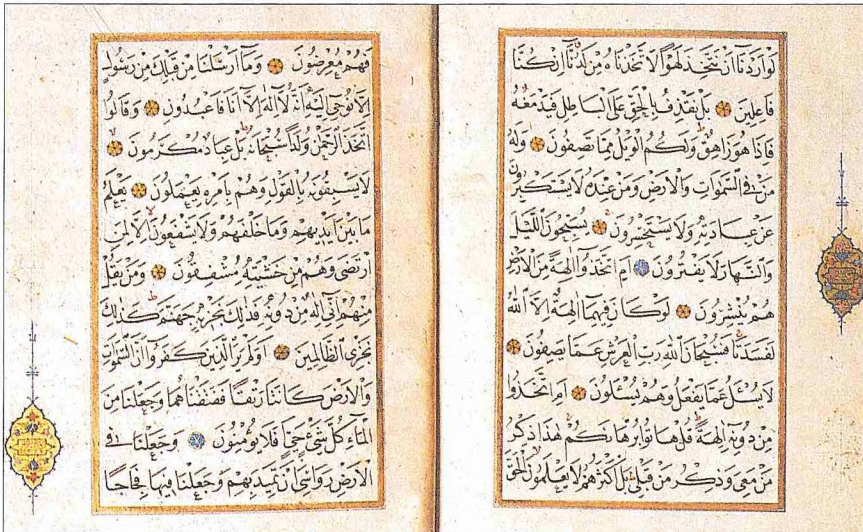 لَوْ اَرَدْنَٓا اَنْ نَتَّخِذَ لَهْوًا لَاتَّخَذْنَاهُ مِنْ لَدُنَّٓا اِنْ كُنَّا
فَاعِلِينَ بَلْ نَقْذِفُ بِالْحَقِّ عَلَى الْبَاطِلِ فَيَدْمَغُهُ
فَاِذَا هُوَ زَاهِقٌ وَلَكُمُ الْوَيْلُ مِمَّا تَصِفُونَ وَلَهُ
مَنْ فِي السَّمٰوَاتِ وَالْاَرْضِ وَمَنْ عِنْدَهُ لَا يَسْتَكْبِرُونَ
عَنْ عِبَادَتِهِ وَلَا يَسْتَحْسِرُونَ يُسَبِّحُونَ اللَّيْلَ
وَالنَّهَارَ لَا يَفْتُرُونَ اَمِ اتَّخَذُٓوا اٰلِهَةً مِنَ الْاَرْضِ
هُمْ يُنْشِرُونَ لَوْ كَانَ فِيهِمَٓا اٰلِهَةٌ اِلَّا اللّٰهُ
لَفَسَدَتَا فَسُبْحَانَ اللّٰهِ رَبِّ الْعَرْشِ عَمَّا يَصِفُونَ
لَا يُسْئَلُ عَمَّا يَفْعَلُ وَهُمْ يُسْئَلُونَ اَمِ اتَّخَذُوا
مِنْ دُونِهِ اٰلِهَةً قُلْ هَاتُوا بُرْهَانَكُمْ هٰذَا ذِكْرُ
مَنْ مَعِيَ وَذِكْرُ مَنْ قَبْلِي بَلْ اَكْثَرُهُمْ لَا يَعْلَمُونَ الْحَقَّ
فَهُمْ مُعْرِضُونَ وَمَٓا اَرْسَلْنَا مِنْ قَبْلِكَ مِنْ رَسُولٍ
اِلَّا نُوحِٓي اِلَيْهِ اَنَّهُ لَٓا اِلٰهَ اِلَّٓا اَنَا فَاعْبُدُونِ وَقَالُوا
اتَّخَذَ الرَّحْمٰنُ وَلَدًا سُبْحَانَهُ بَلْ عِبَادٌ مُكْرَمُونَ
لَا يَسْبِقُونَهُ بِالْقَوْلِ وَهُمْ بِاَمْرِهِ يَعْمَلُونَ يَعْلَمُ
مَا بَيْنَ اَيْدِيهِمْ وَمَا خَلْفَهُمْ وَلَا يَشْفَعُونَ اِلَّا لِمَنِ
ارْتَضٰى وَهُمْ مِنْ خَشْيَتِهِ مُشْفِقُونَ وَمَنْ يَقُلْ
مِنْهُمْ اِنِّٓي اِلٰهٌ مِنْ دُونِهِ فَذٰلِكَ نَجْزِيهِ جَهَنَّمَ كَذٰلِكَ
نَجْزِي الظَّالِمِينَ اَوَلَمْ يَرَ الَّذِينَ كَفَرُٓوا اَنَّ السَّمٰوَاتِ
وَالْاَرْضَ كَانَتَا رَتْقًا فَفَتَقْنَاهُمَا وَجَعَلْنَا مِنَ
الْمَٓاءِ كُلَّ شَيْءٍ حَيٍّ اَفَلَا يُؤْمِنُونَ وَجَعَلْنَا فِي
الْاَرْضِ رَوَاسِيَ اَنْ تَمِيدَ بِهِمْ وَجَعَلْنَا فِيهَا فِجَاجًا